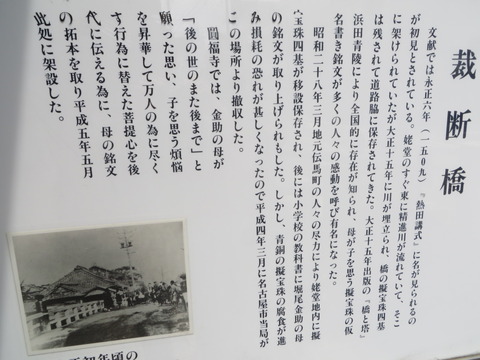 裁断橋
文献では永正六年（一五〇九）『熱田講式』に名が見られるの
が初見とされている。姥堂のすぐ東に精進川が流れていて、そこ
に架けられていたが大正十五年に川が埋立られ、橋の擬宝珠四基
は残されて道路脇に保存されてきた。大正十五年出版の『橋と塔』
浜田青陵により全国的に存在が知られ、母が子を思う擬宝珠の仮
名書き銘文が多くの人々の感動を呼び有名になった。
昭和二十八年三月地元伝馬町の人々の尽力により姥堂地内に擬
宝珠四基が移設保存され、後には小学校の教科書に堀尾金助の母
の銘文が取り上げられもした。しかし、青銅の擬宝珠の腐食が進
み損耗の恐れが甚しくなったので平成四年三月に名古屋市当局が
この場所より撤収した。
圓福寺では、金助の母が
「後の世のまた後まで」と
願った思い、子を思う煩悩
を昇華して万人の為に尽く
す行為に替えた菩提心を後
代に伝える為に、母の銘文
の拓本を取り平成五年五月
此処に架設した。
年頃の